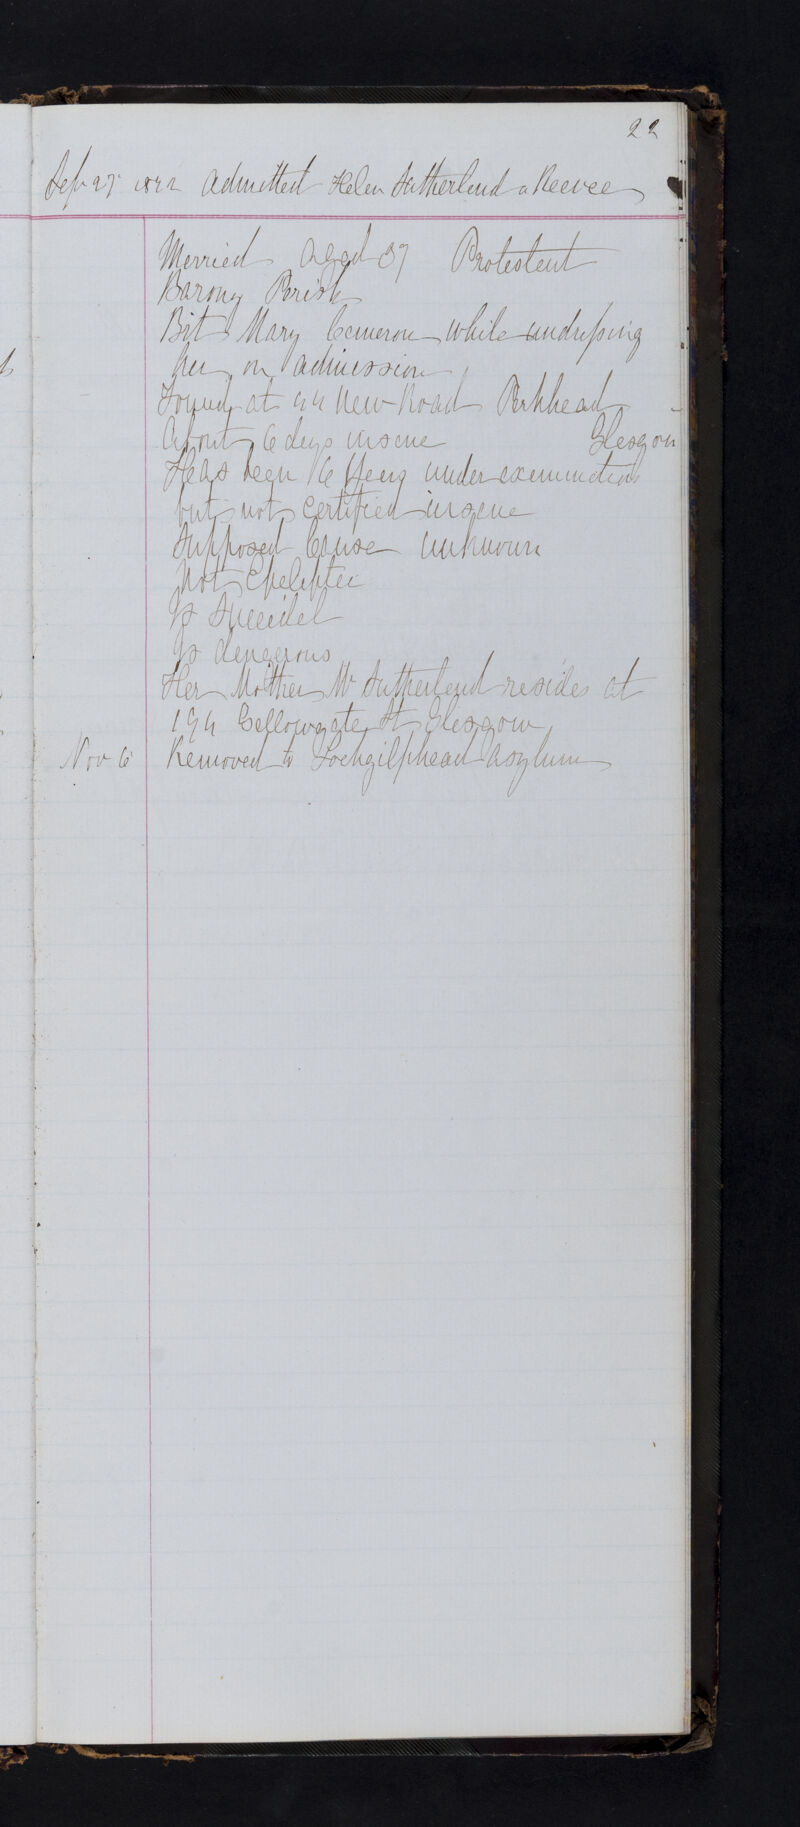 22
Sep 27 1872 Admitted Helen Sutherland or Reevee
Married Aged 37 Protestant
Barony Parish
Bit Mary Cameron while undressing
her on admission
Found at 44 New Road Parkhead
About 6 days insane Glasgow
Has been 16 years under examination
but not certified insane
Supposed Cause unknown
Not Epeleptic
Is Suecidel
Is dangerous
Her Mother Mr Sutherland resides at
194 Gallowgate St Glasgow
Nov 6 Removed to Lochgilphead Asylum